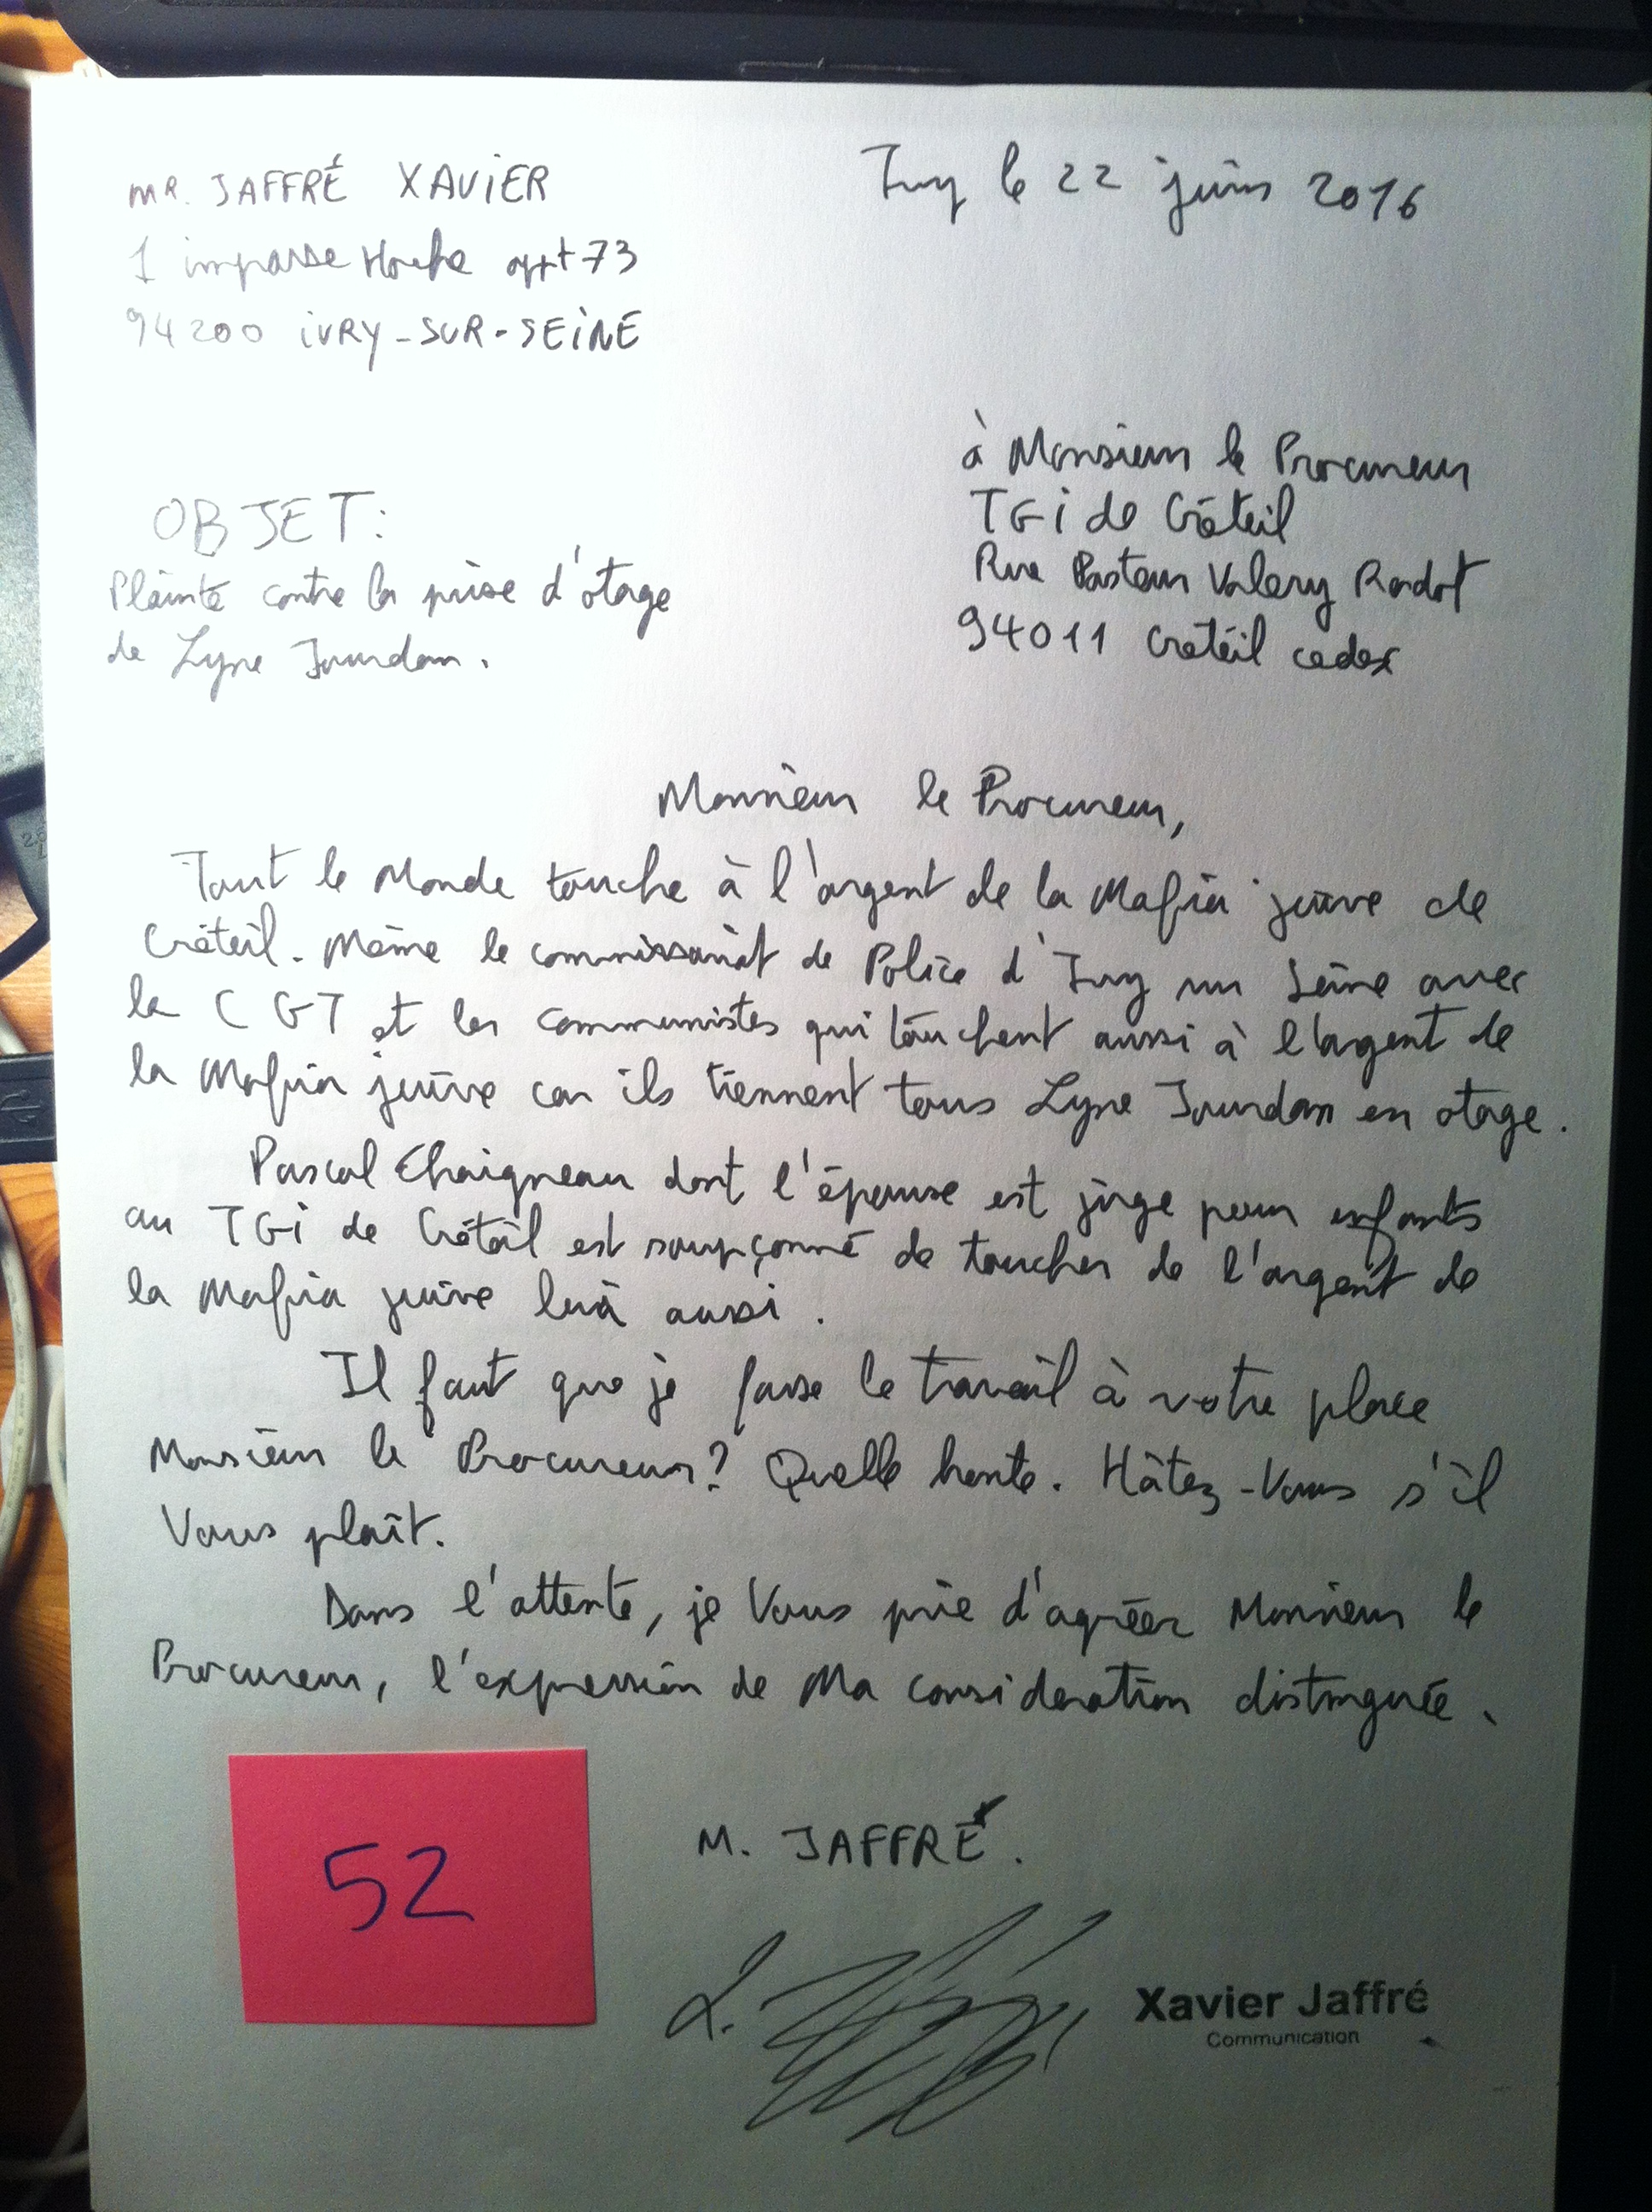 MR. JAFFRÉ XAVIER
Ivry le 22 juin 2016
1 impasse Hoche appt 73
94200 IVRY-SUR-SEINE
à Monsieur le Procureur
TGI de Créteil
Rue Pasteur Valery Radot
94011 Créteil cedex
OBJET:
Plainte contre la prise d'otage
de Lyne Jourdan.
Monsieur le Procureur,
Tout le Monde touche à l'argent de la Mafia juive de
Créteil. Même le commissariat de Police d'Ivry sur Seine avec
la CGT et les communistes qui touchent aussi à l'argent de
la Mafia juive car ils tiennent tous Lyne Jourdan en otage.
Pascal Chaigneau dont l'épouse est juge pour enfants
au TGI de Créteil est soupçonné de toucher de l'argent de
la Mafia juive lui aussi.
Il faut que je fasse le travail à votre place
Monsieur le Procureur? Quelle honte. Hâtez-Vous s'il
Vous plaît.
Dans l'attente, je Vous prie d'agréer Monsieur le
Procureur, l'expression de Ma consideration distinguée.
M. JAFFRÉ.
52
Xavier Jaffré
Communication